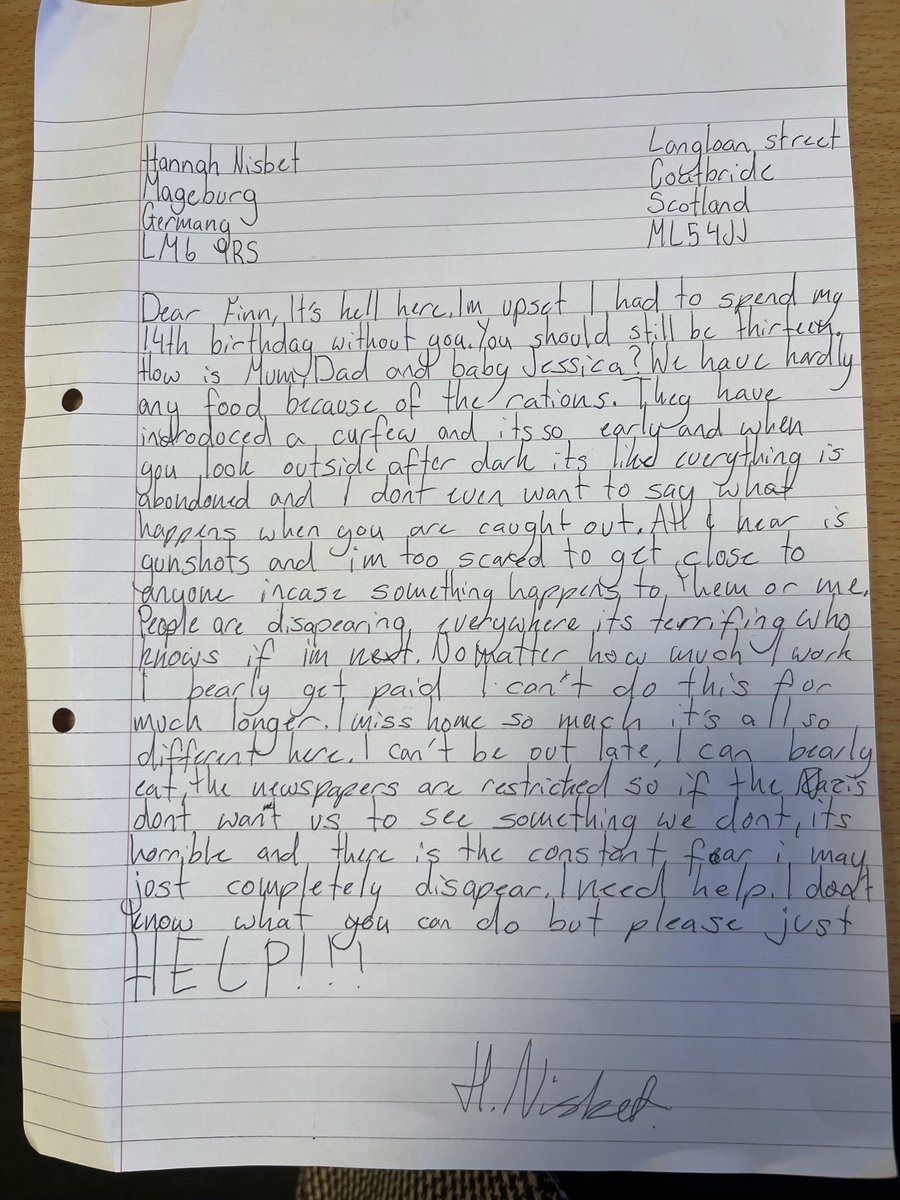 Hannah Nisbet
Mageburg
Germany
LM6 9RS
Langloan street
Coatbride
Scotland
ML5 4JJ
Dear Finn, It's hell here. Im upset I had to spend my
14th birthday without you. You should still be thirteen.
How is Mum, Dad and baby Jessica? We have hardly
any food because of the rations. They have
introdoced a curfew and its so early and when
you look outside after dark its like everything is
abondoned and I dont even want to say what
happens when you are caught out. All I hear is
gunshots and i'm too scared to get close to
anyone incase something happens to them or me.
People are disapearing everywhere its terrifing who
knows if im next. No matter how much I work
I bearly get paid I can't do this for
much longer. I miss home so much it's all so
different here. I can't be out late, I can bearly
eat, the newspapers are restrichted so if the Nazis
dont want us to see something we dont, its
horrible and there is the constant fear i may
jost completely disapear. I need help. I dont
know what you can do but please just
HELP!!!
H. Nisbet